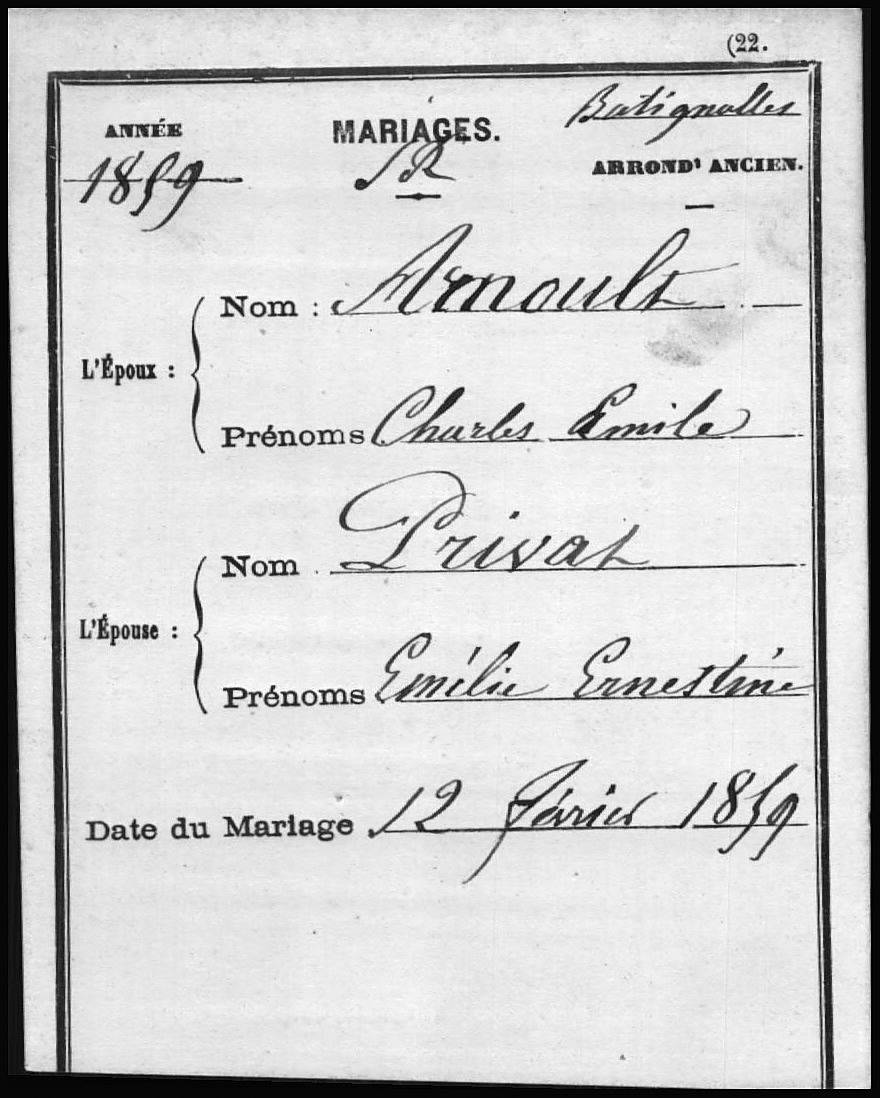 (22.
ANNÉE
1859
MARIAGES.
SR
Batignolles
ARRONDᵗ ANCIEN.
L'Époux :
Nom : Arnoult
Prénoms Charles Emile
L'Épouse :
Nom Privat
Prénoms Emélie Ernestine
Date du Mariage 12 février 1859